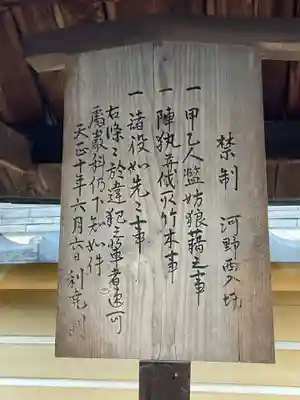 禁制 河野西久坊
一 甲乙人監妨狼藉之事
一 陣執并伐取竹木事
一 諸役如先々事
右條々於違犯之輩者速可
處嚴科仍下知如件
天正十年六月六日 利尭